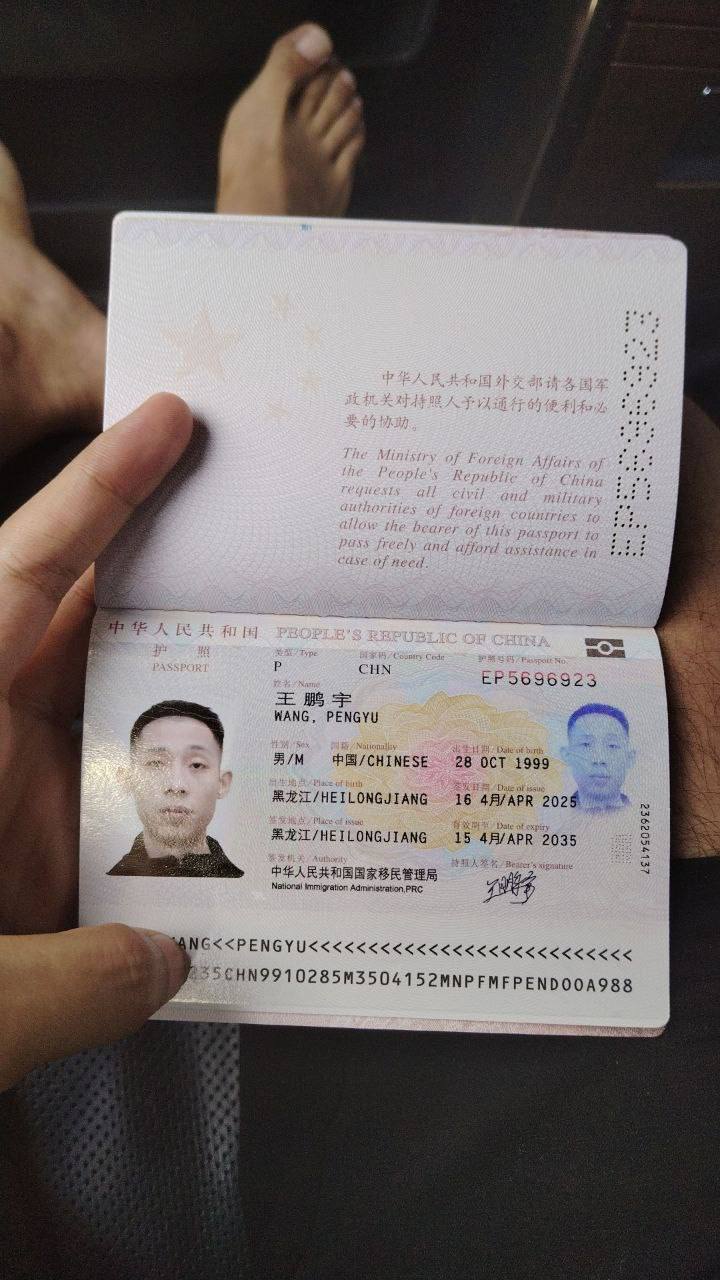 EP5696923
中华人民共和国外交部请各国军
政机关对持照人予以通行的便利和必
要的协助。
The Ministry of Foreign Affairs of
the People's Republic of China
requests all civil and military
authorities of foreign countries to
allow the bearer of this passport to
pass freely and afford assistance in
case of need.
中华人民共和国 PEOPLE'S REPUBLIC OF CHINA
护 照
PASSPORT
类型/Type 国家码/Country Code 护照号码/Passport No.
P CHN EP5696923
姓名/Name
王鹏宇
WANG, PENGYU
性别/Sex 国籍/Nationality 出生日期/Date of birth
男/M 中国/CHINESE 28 OCT 1999
出生地点/Place of birth 签发日期/Date of issue
黑龙江/HEILONGJIANG 16 4月/APR 2025
签发地点/Place of issue 有效期至/Date of expiry
黑龙江/HEILONGJIANG 15 4月/APR 2035
签发机关/Authority 持照人签名/Bearer's signature
中华人民共和国国家移民管理局
National Immigration Administration,PRC
王鹏宇
2362054137
ANG<<PENGYU<<<<<<<<<<<<<<<<<<<<<<<<<<<
235CHN9910285M3504152MNPFMFPENDOOA988